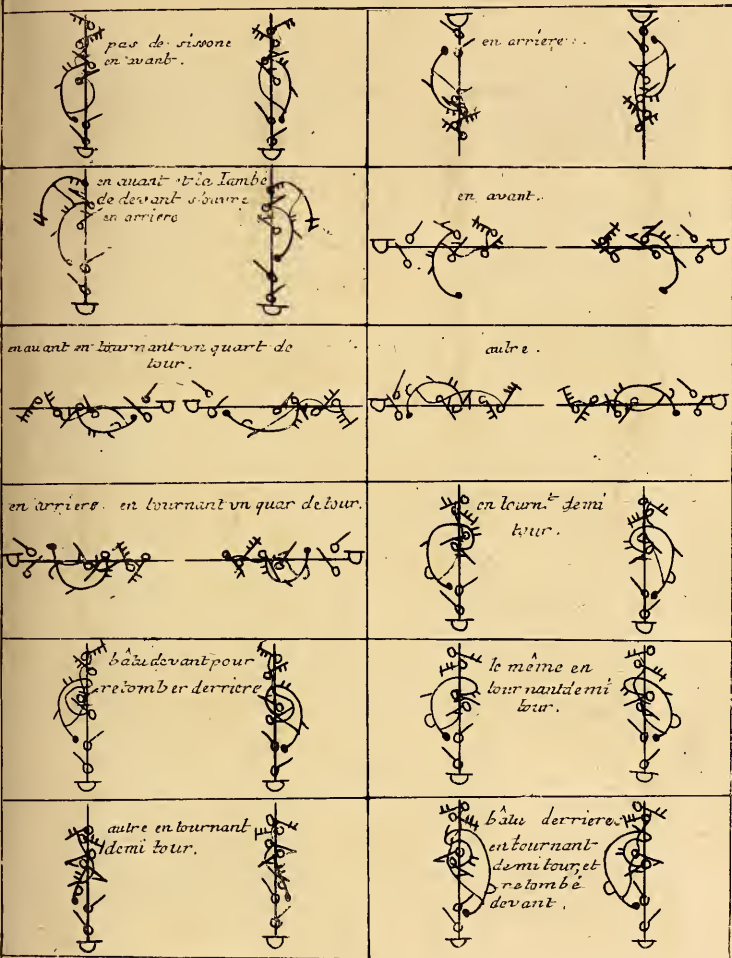 pas de sissone
en avant.
en arriere.
en avant et la Jambe
de devant s'ouvre
en arriere
en avant.
en avant en tournant un quart de
tour.
autre.
en arriere. en tournant un quar de tour.
en tournt. demi
tour.
bâtu devant pour
retomber derriere
le même en
tournant demi
tour.
autre en tournant
demi tour.
bâtu derriere
en tournant
demi tour, et
retombé
devant.